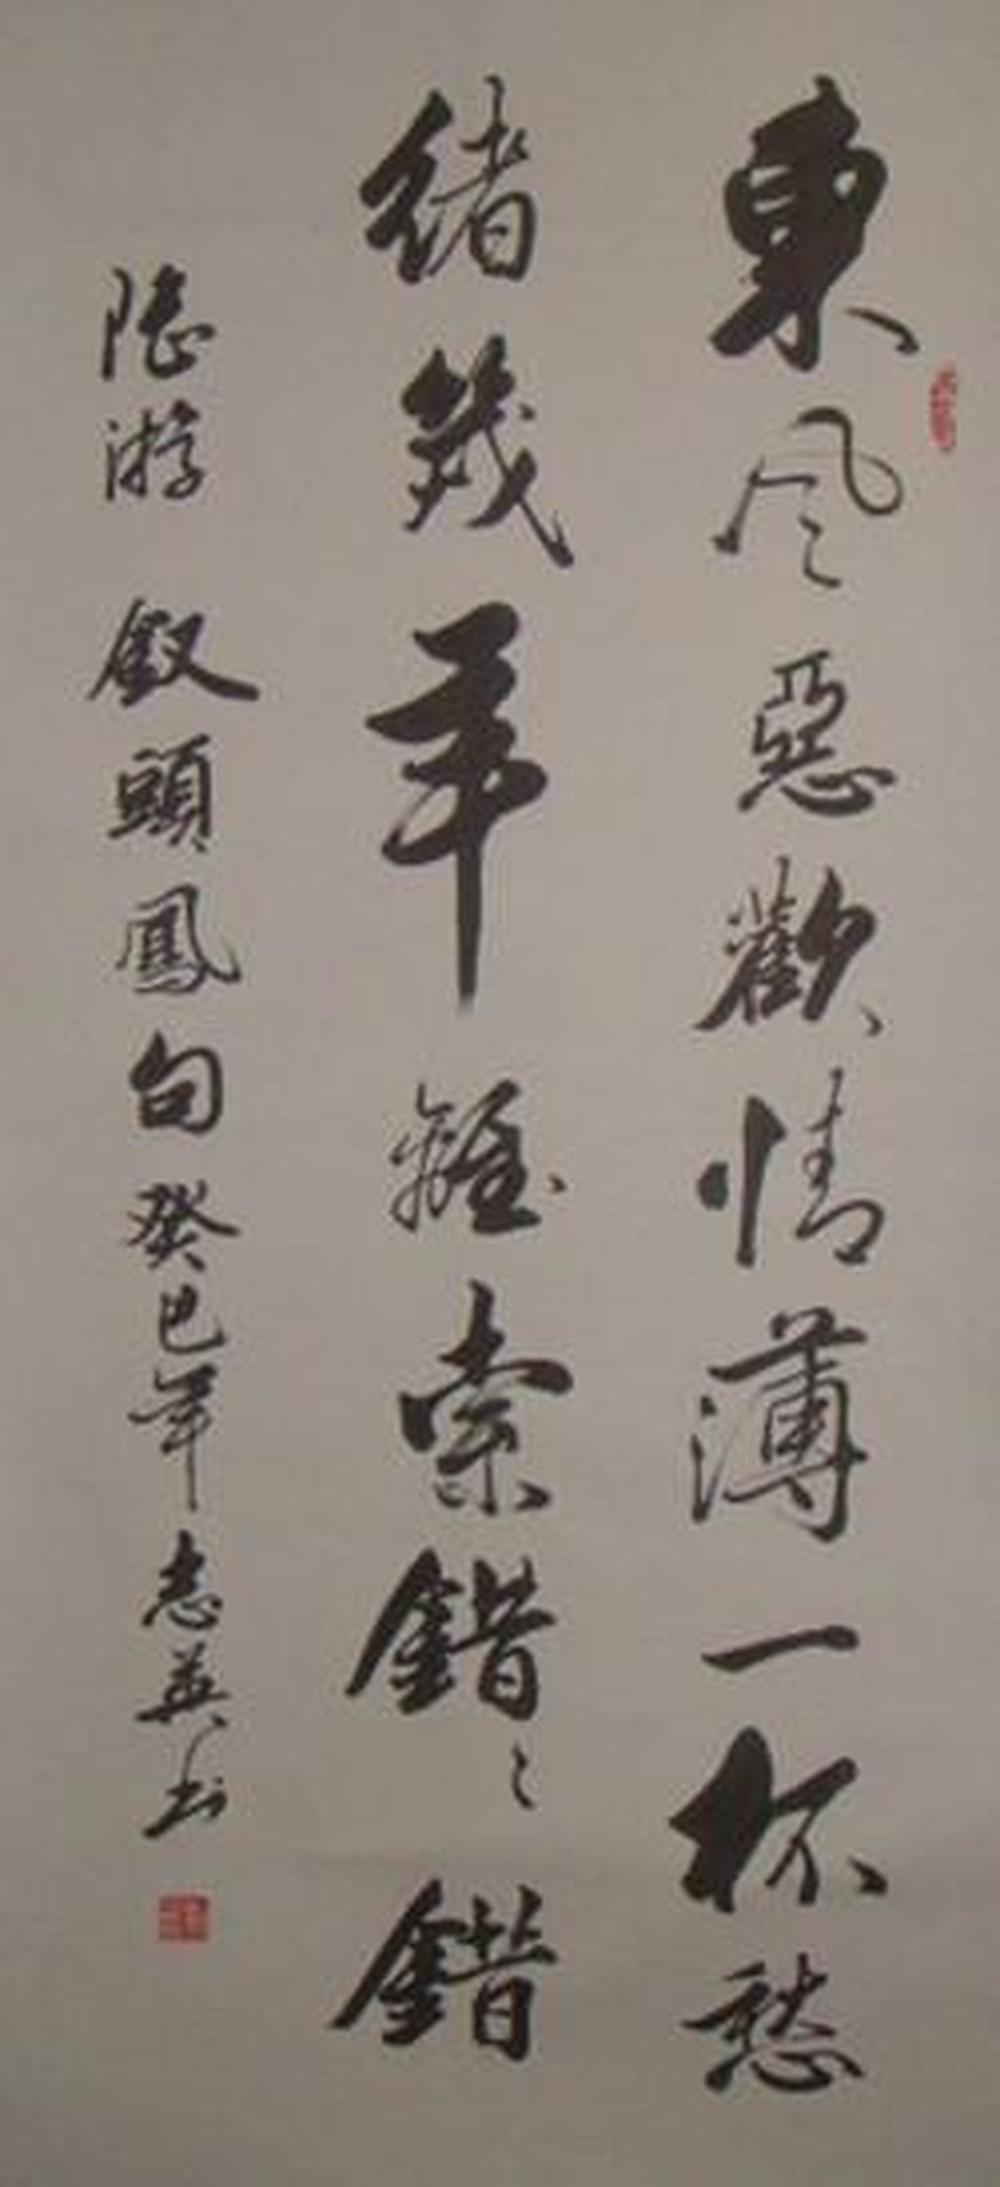 東風惡歡情薄一杯愁
緒幾年離索錯〻錯
陸游 釵頭鳳句 癸巳年志英书